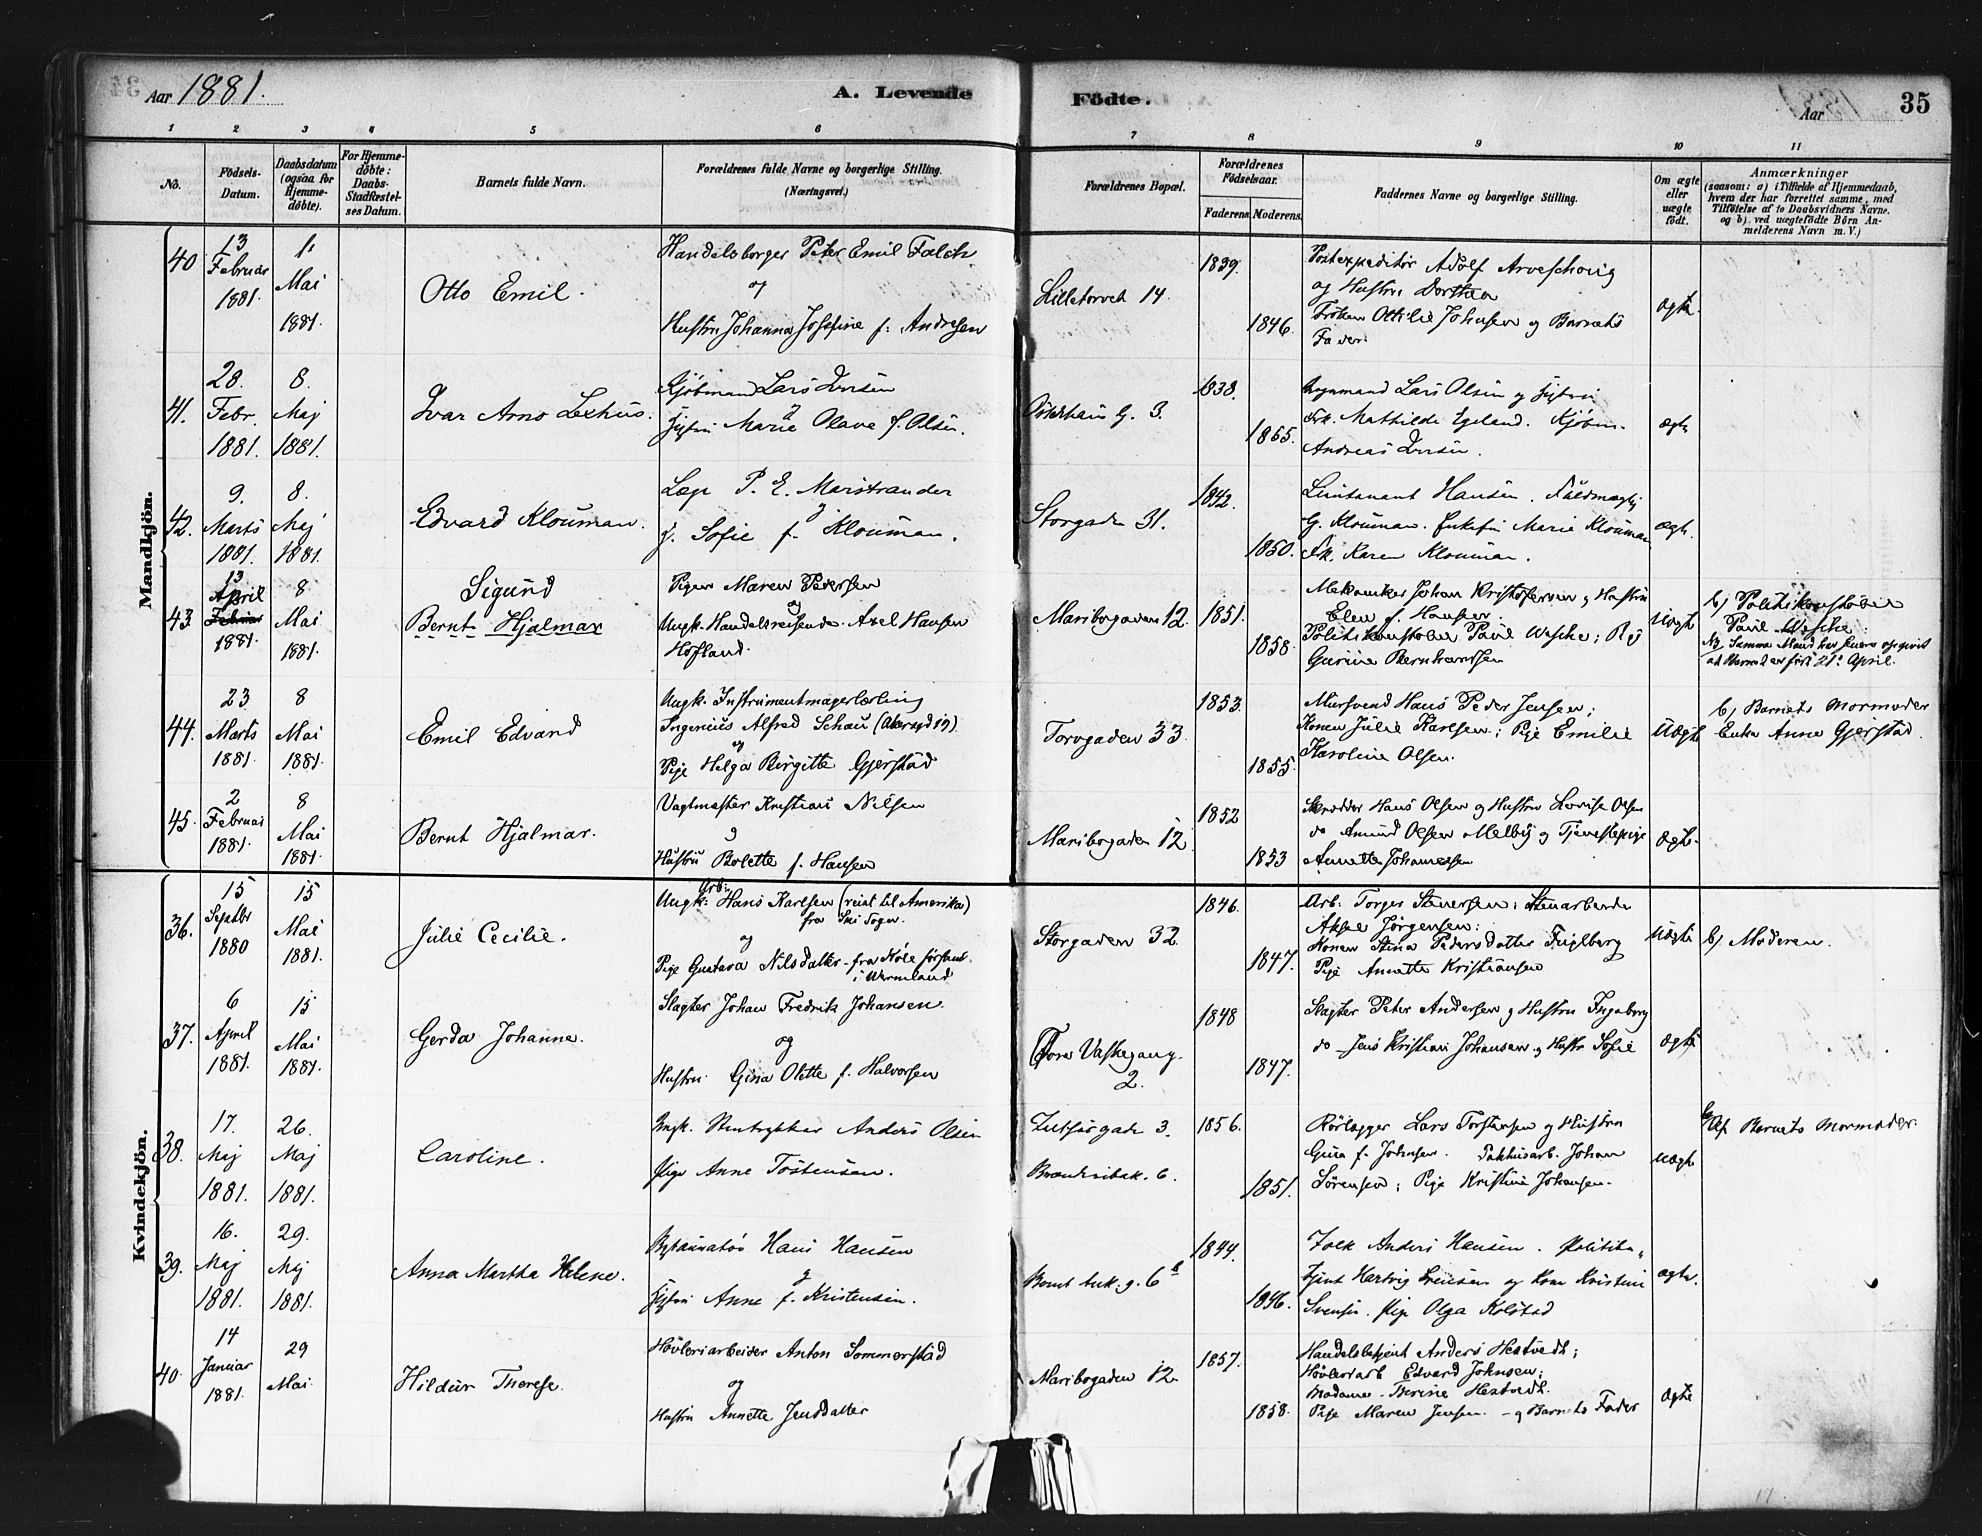 Aar 1881.
A. Levende Födte.
Aar
35
1 2 3 4 5 6 7 8 9 10 11
No.
Födsels-Datum.
Daabsdatum (ogsaa for Hjemmedöbte).
For Hjemmedöbte: Daabs-Stadfæstelses Datum.
Barnets fulde Navn.
Forældrenes fulde Navne og borgerlige Stilling. (Næringsvei.)
Forældrenes Bopæl.
Forældrenes Födselsaar.
Faderens. Moderens.
Faddernes Navne og borgerlige Stilling.
Om ægte eller uægte födt.
Anmærkninger
(saasom: a) i Tilfælde af Hjemmedaab, hvem der har forrettet samme, med Tilföielse af to Daabsvidners Navne, og b) ved uægtefödte Börn Anmelderens Navn m. V.)
Mandkjön.
40
13 Februar 1881.
1. Mai 1881.
Otto Emil.
Handelsborger Peter Emil Falch
og
Hustru Johanna Josefine f. Andresen
Lilletorvet 14.
1839.
1846.
Postexpeditör Adolf Arveschoug
og Hustru Dorthea
Fröken Ottilie Johnsen og Barnets
Fader.
ægte.
41.
28. Febr. 1881.
8. Maj 1881.
Ivar Arno Lexhus.
Kjöbmand Lars
og
Marie Olave f. Olsen.
3.
1838.
1865.
Lars Olsen og
Frk. Mathilde Egeland. Kjöbm.
Andreas
ægte
42.
9. Marts 1881.
8. Maj 1881.
Edvard Klouman.
Læge P. E. Marstrander
og
Sofie f. Klouman.
Storgaden 31.
1842.
1850.
Lieutenant Hansen. Fuldmægtig
G. Klouman. Enkefru Marie Klouman
Frk. Karen Klouman.
ægte.
43
13 April Februar 1881.
8 Mai 1881.
Sigurd
Bernt Hjalmar
Pigen Maren Pedersen
og
Ungk. Handelsreisende Axel Hansen
Hofland.
Maribogaden 12.
1851.
1858.
Mekaniker Johan Kristofersen og Hustru
Elen f. Hansen.
Politikonstabel Paul Wesche;
Gurine Bernhardsen
Uægte
b) Politikonstabel
Paul Wesche.
NB Samme Mand har senere opgivet
at Barnet er født 21. April.
44.
23 Marts 1881.
8 Mai 1881.
Emil Edvard
Ungk. Instrumentmagerlærling
Ingenius Alfred Schau (Akersgd 19)
og
Pige Helga Birgitte Gjerstad
Torvgaden 33.
1853.
1855.
Mursvend Hans Peder Jensen;
Konen Julie Karlsen; Pige Emilie
Karoline Olsen.
Uægte
b) Barnets Mormoder
Enke Anne Gjerstad.
45.
2 Februar 1881.
8 Mai 1881.
Bernt Hjalmar.
Vagtmester Kristian Nilsen
og
Hustru Bolette f. Hansen
Maribogaden 12.
1852
1853
Skrædder Hans Olsen og Hustru Lovise Olsen
do Amund Olsen Melby og Tjenestepige
Annette Johannesen
Ægte.
Kvindekjön.
36.
15 Septbr 1880
15 Mai 1881.
Julie Cecilie.
Ungk. Arb: Hans Karlsen (reist til Amerika)
fra Ski Sogn.
og
Pige Gustava Nilsdatter fra
i Wermland
Storgaden 32.
1846.
1847.
Arb. Torger Stenersen; Stenarbeider
Aksel Jörgensen:
Konen Stina Pedersdatter Fuglberg
Pige Annette Kristiansen
Uægte
b) Moderen.
37.
6 April 1881.
15 Mai 1881.
Gerda Johanne.
Slagter Johan Fredrik Johansen.
og
Hustru Gina Olette f. Halvorsen
Fore Vaskegang.
2.
1848
1847.
Slagter Peter Andersen og Hustru Ingeborg
do Jens Kristian Johansen og Hustr Sofie
Ægte
38.
17. Maj 1881.
26. Maj 1881.
Caroline.
Ungk. Stentrykker Anders Olsen
Pige Anne Tostensen.
3.
6.
1856.
1851.
Rörlægger Lars Torstensen og Hustru
Gina f. Johnsen. Pakhusarb. Johan
Sörensen; Pige Kristine Johansen.
Uægte
b/ Af Barnets Mormoder.
39.
16. Maj 1881.
29. Maj 1881.
Anna Martha Helene.
Hans Hansen
og
Anne f. Kristensen.
6
1844.
1846.
Anders Hansen. Politibe-
tjent Hartvig Svensen og Kone Kristine
Svensen. Pige Olga Kolstad
ægte.
40.
14 Januar 1881.
29 Mai
Hildur Therese.
Hövleriarbeider Anton Sommerstad
og
Hustru Annette Jensdatter
Maribogaden 12.
1857.
1858.
Handelsbetjent Anders Hestvedt;
Hövleriarb Edvard Johnsen;
Madame Berine Hestvedt.
Pige Maren Jensen. og Barnets Fader
Ægte